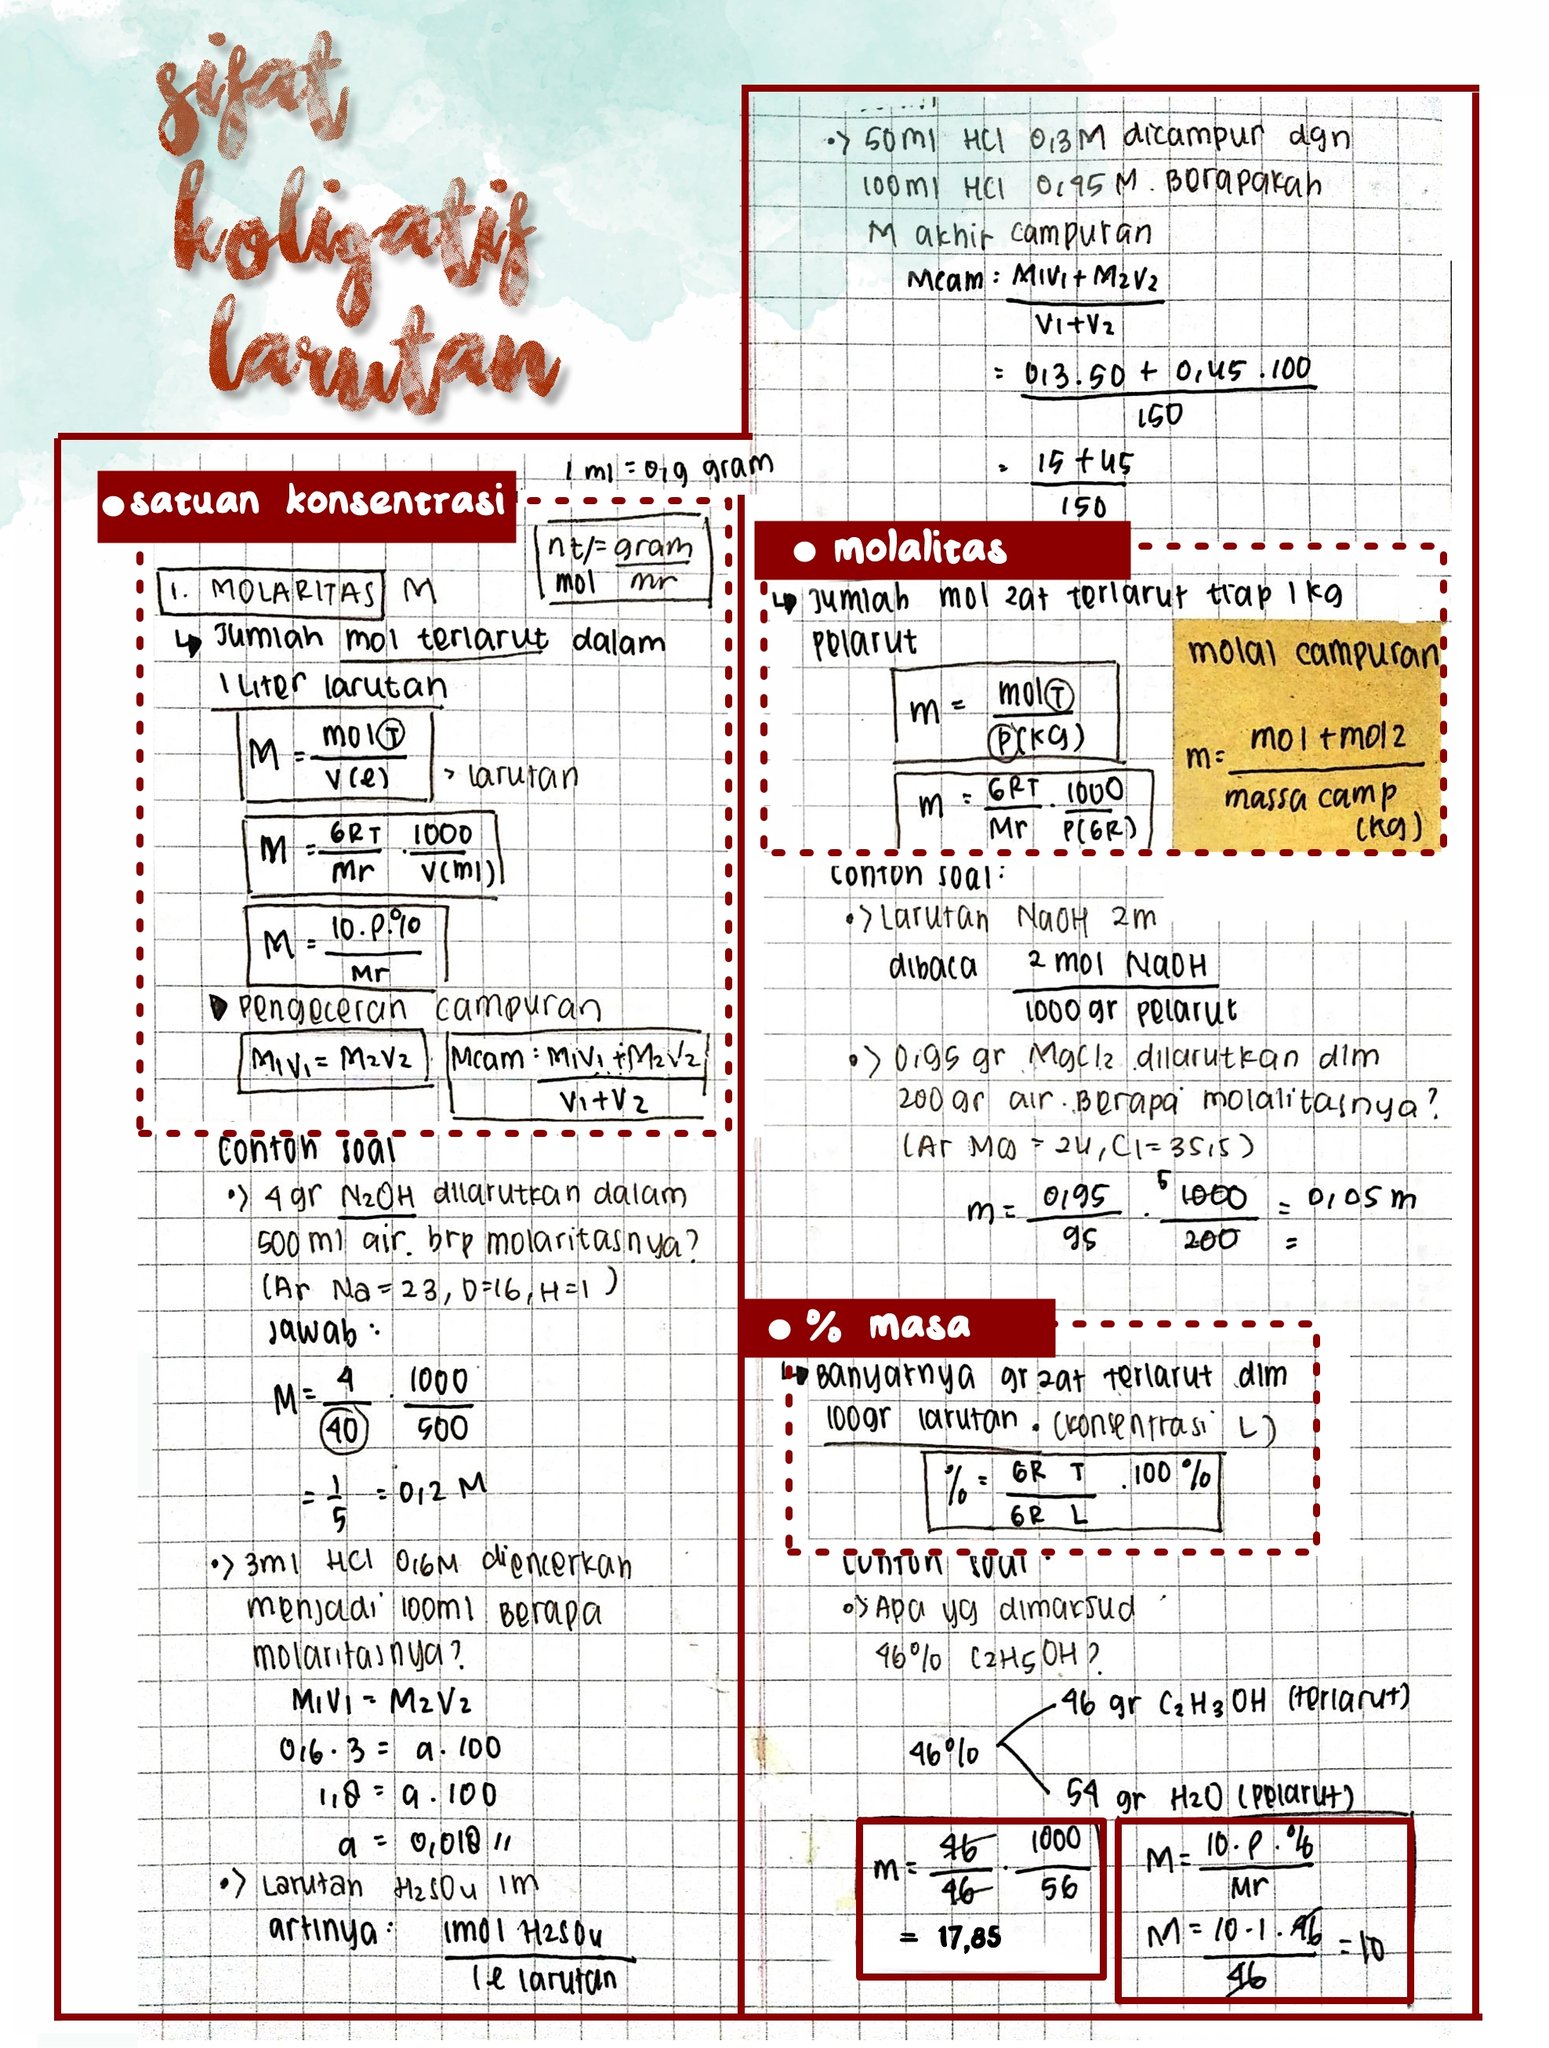 sifat
koligatif
larutan
1 ml = 0,9 gram
• satuan konsentrasi
nt/mol = gram/mr
1. MOLARITAS M
↳ Jumlah mol terlarut dalam
1 Liter larutan
M = mol(T)/V(l) > larutan
M = GRT/Mr . 1000/V(ml)
M = 10.P.%/Mr
▶ Pengeceran campuran
M1V1 = M2V2
Mcam : M1V1 + M2V2/V1+V2
Contoh soal
•> 4 gr N2OH dilarutkan dalam
500 ml air. brp molaritasnya?
(Ar Na=23, O=16, H=1)
Jawab :
M = 4/40 . 1000/500
= 1/5 = 0,2 M
•> 3ml HCl 0,6M diencerkan
menjadi 100ml Berapa
molaritasnya?
M1V1 = M2V2
0,6 . 3 = a . 100
1,8 = a . 100
a = 0,018 //
•> Larutan H2SO4 1M
artinya : 1mol H2SO4/1 l larutan
•> 50ml HCl 0,3M dicampur dgn
100ml HCl 0,45 M. Berapakah
M akhir campuran
Mcam : M1V1 + M2V2/V1+V2
= 0,3.50 + 0,45.100/150
= 15 + 45/150
• molalitas
↳ Jumlah mol zat terlarut tiap 1 kg
pelarut
m = mol(T)/(P)(KG)
m = GRT/Mr . 1000/P(GR)
molal campuran
m = mol + mol2/massa camp (kg)
Contoh soal:
•> Larutan NaOH 2m
dibaca 2 mol NaOH/1000 gr pelarut
•> 0,95 gr MgCl2 dilarutkan dlm
200 gr air. Berapa molalitasnya?
(Ar Mg = 24, Cl = 35,5)
m = 0,95/95 . 5 1000/200 = 0,05 m
=
• % masa
↳ Banyaknya gr zat terlarut dlm
100gr larutan. (Konsentrasi L)
% = GR T/GR L . 100 %
Contoh soal :
•> Apa yg dimaksud
46% C2H5OH?
46 gr C2H3OH (terlarut)
46%
54 gr H2O (pelarut)
m = 46/46 . 1000/56
= 17,85
M = 10.P.%/Mr
M = 10.1.46/46 = 10